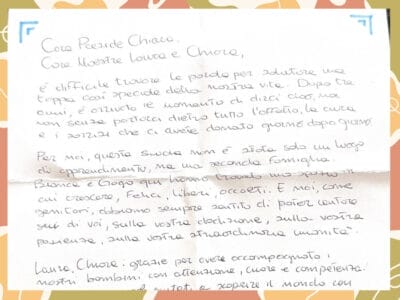 Cara Preside Chiara,
Care Maestre Laura e Chiara,
è difficile trovare le parole per salutare una
tappa così speciale della nostra vita. Dopo tre
anni, è arrivato il momento di dirci ciao, ma
non senza portarci dietro tutto l'affetto, la cura
e i sorrisi che ci avete donato giorno dopo giorno.
Per noi, questa scuola non è stata solo un luogo
di apprendimento, ma una seconda famiglia.
Bianca e qui hanno trovato uno spazio in
cui crescere, felici, liberi, accolti. E noi, come
genitori, abbiamo sempre sentito di poter contare
su di voi, sulla vostra dedizione, sulla vostra
pazienza, sulla vostra straordinaria umanità.
Laura, Chiara: grazie per avere accompagnato i
nostri bambini con attenzione, cuore e competenza.
a scoprire il mondo con